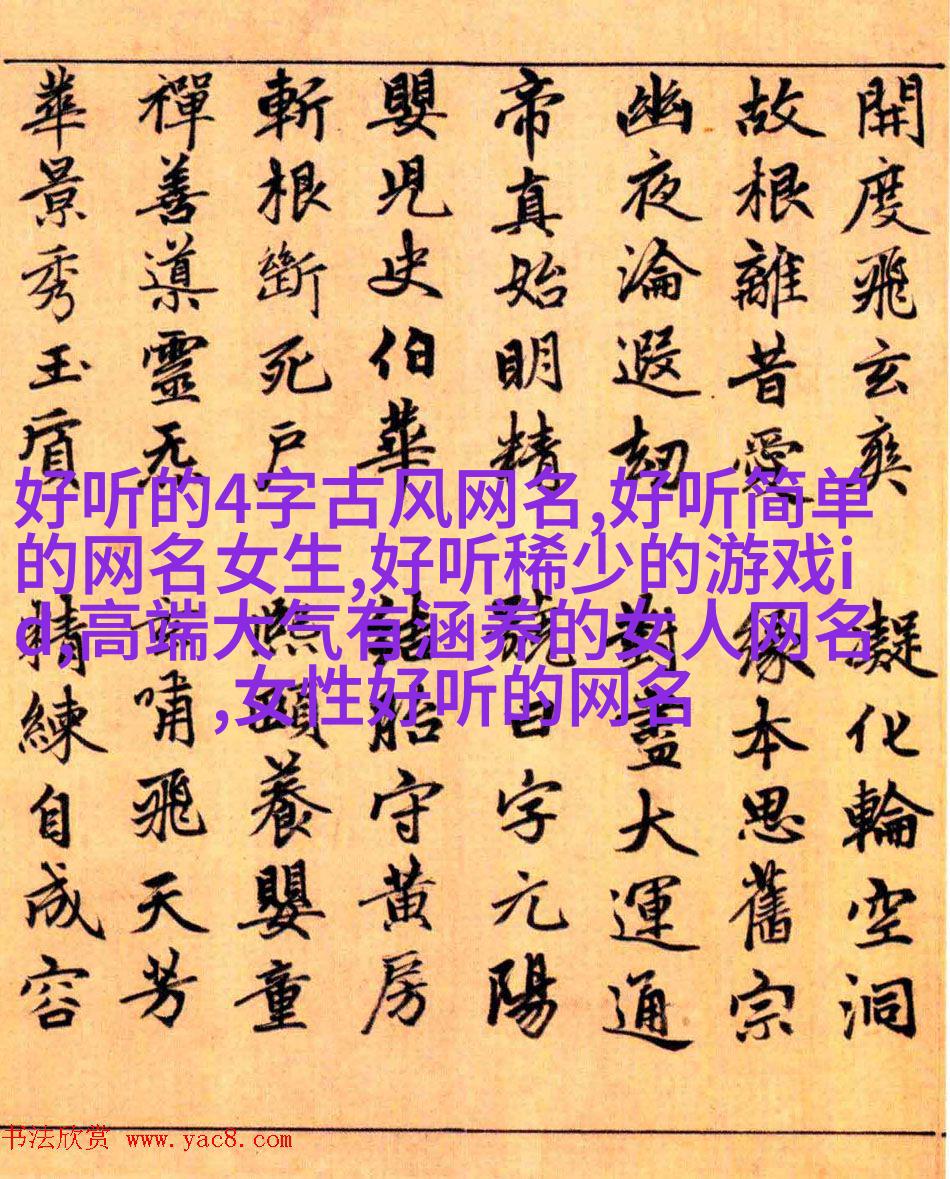 開度飛玄爽
凝化輪空洞
故根離昔愛
緣本思舊宗
幽夜淪遐劫
對盡大運通
帝真始明精
號曰字元陽
嬰兒史伯華
結胎守黃房
斬根斷死戶
熙頤養嬰童
禪善導靈无
端嘯飛天芳
華景秀玉質
精練自成容
好听的4字古风网名,好听简单
的网名女生,好听稀少的游戏i
d,高端大气有涵养的女人网名
,女性好听的网名
书法欣赏 www.yac8.com